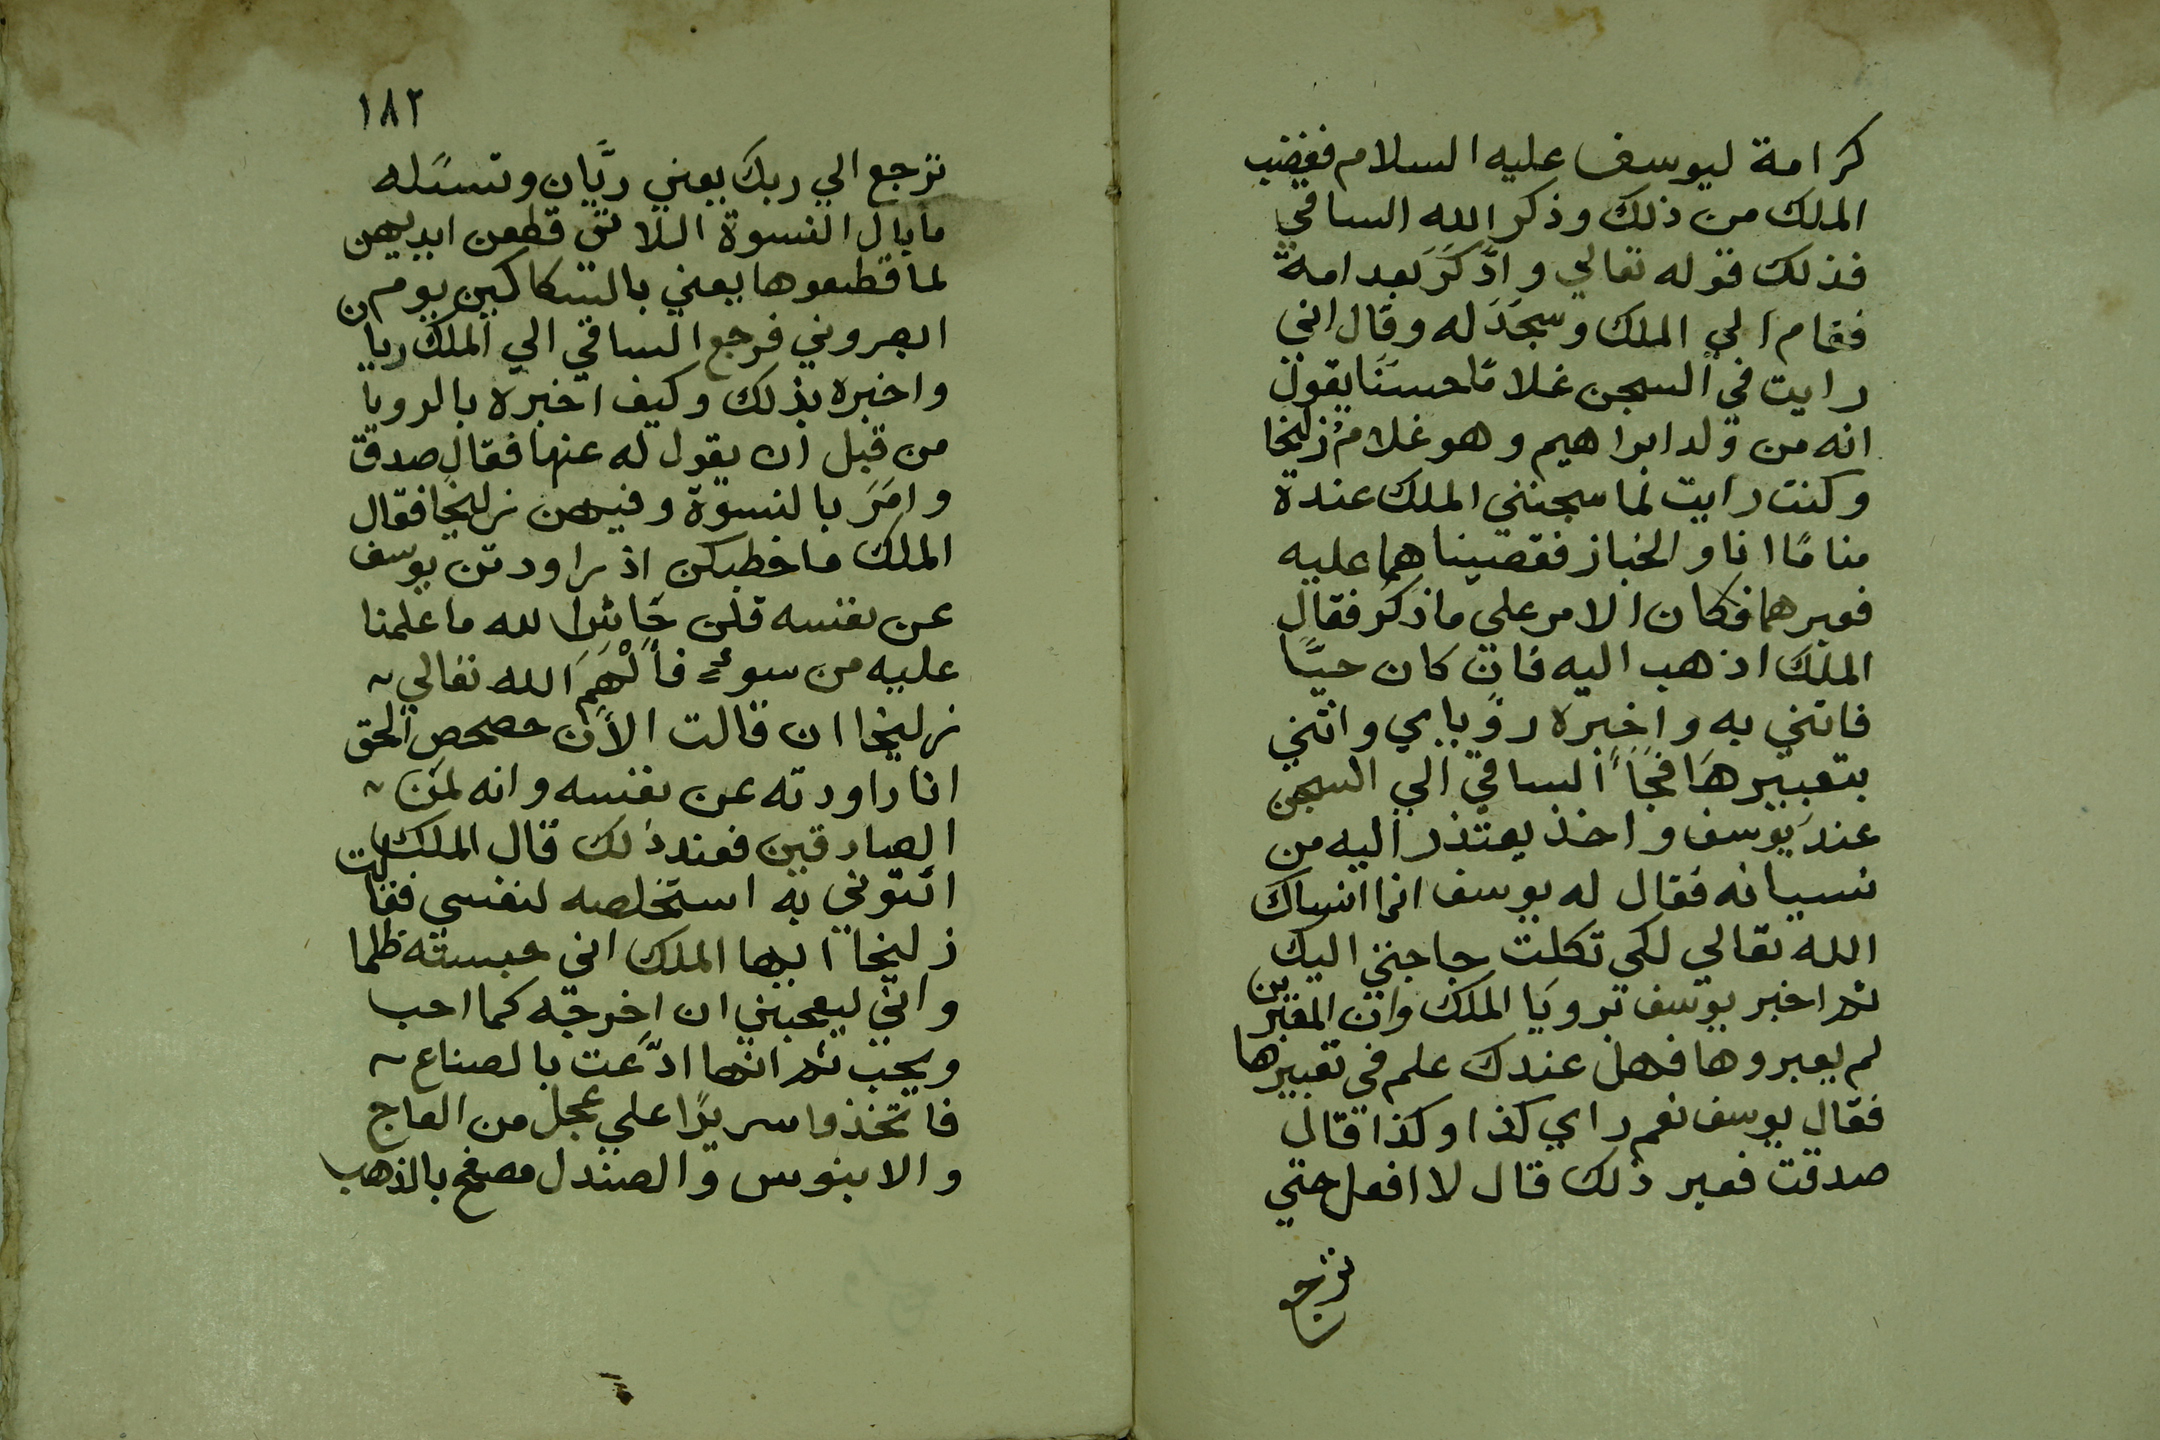 كرامة ليوسف عليه السلام فغضب
الملك من ذلك وذكر الله الساقي
فذلك قوله تعالي وادَّكَرَ بعد امة
فقام الي الملك وسَجَدَ له وقال اني
رايت في السجن غلامًا حسنًا يقول
انه من ولد ابراهيم وهو غلام زليخا
وكنت رايت لما سجنني الملك عنده
منامًا انا والخباز فقصيناهما عليه
فعبرهما فكان الامر علي ما ذكر فقال
الملك اذهب اليه فان كان حيًّا
فاتني به واخبره روياي واتني
بتعبيرها فجاً الساقي الي السجن
عند يوسف واخذ يعتذر اليه من
نسيانه فقال له يوسف انما انساك
الله تعالي لكي تكلت حاجتي اليك
ثم اخبر يوسف برويا الملك وان المعبرين
لم يعبروها فهل عندك علم في تعبيرها
فقال يوسف نعم راي كذا وكذا قال
صدقت فعبر ذلك قال لا افعل حتي
ترجع
١٨٢
ترجع الي ربك يعني ريَّان وتسئله
ما بال النسوة اللاتي قطعن ايديهن
لما قطعوها يعني بالسكاكين يوم
ابصروني فرجع الساقي الي الملك ريان
واخبره بذلك وكيف اخبره بالرويا
من قبل ان يقول له عنها فقال صدق
وامَرَ بالنسوة وفيهن زليخا فقال
الملك ما خطبكن اذ راودتن يوسف
عن نفسه قلن حاش لله ما علمنا
عليه من سوء فألْهَمَ الله تعالي
زليخا ان قالت الآن حصحص الحق
انا راودته عن نفسه وانه لمن
الصادقين فعند ذلك قال الملك
ائتوني به استخلصه لنفسي فقالت
زليخا ايها الملك اني حبسته ظلما
واني ليعجبني ان اخرجه كما احب
ويجب ثم انها ادَّعت بالصناع
فاتخذوا سريرًا علي عجل من العاج
والابنوس والصندل مصفح بالذهب